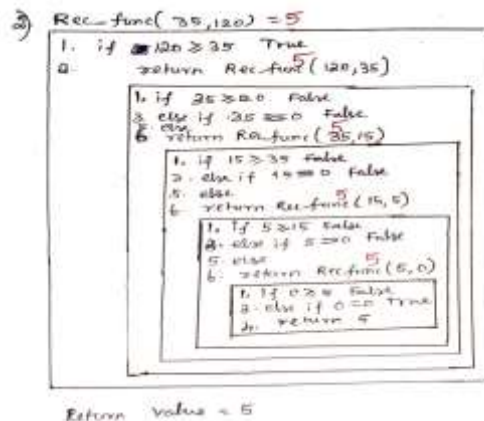 2) Rec-func( 35,120) = 5
1. if 120 ≥ 35 True
2. return Rec-func 5 ( 120, 35)
1. if 35 ≥ 120 False
3. else if 35 == 0 False
5. else
6. return Rec-func 5 (35,15)
1. if 15 ≥ 35 False
3. else if 15 == 0 False
5. else
6. return Rec-func 5 (15, 5)
1. if 5 ≥ 15 False
3. else if 5 == 0 False
5. else
6. return Rec-func 5 (5, 0)
1. if 0 ≥ 5 False
3. else if 0 == 0 True
4. return 5
Return value = 5